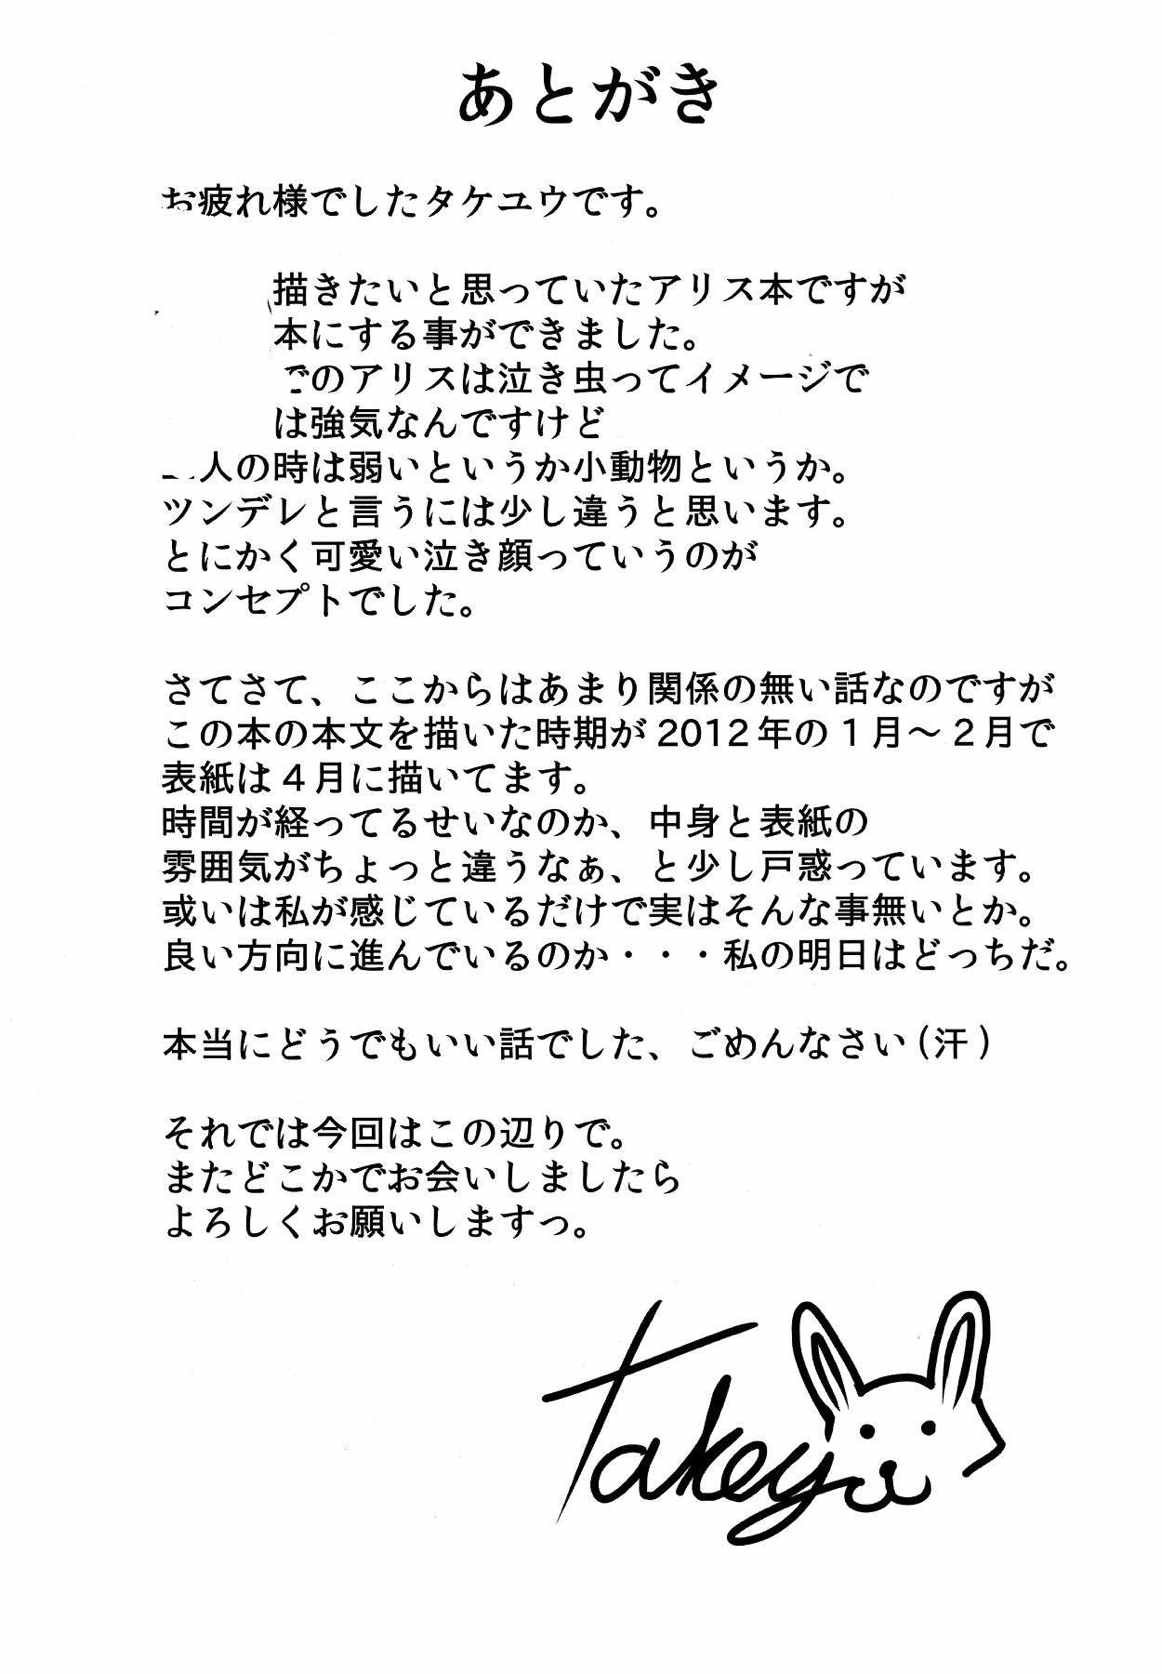 あとがき
お疲れ様でしたタケユウです。
描きたいと思っていたアリス本ですが
本にする事ができました。
でのアリスは泣き虫ってイメージで
は強気なんですけど
人の時は弱いというか小動物というか。
ツンデレと言うには少し違うと思います。
とにかく可愛い泣き顔っていうのが
コンセプトでした。
さてさて、ここからはあまり関係の無い話なのですが
この本の本文を描いた時期が2012年の1月～2月で
表紙は4月に描いてます。
時間が経ってるせいなのか、中身と表紙の
雰囲気がちょっと違うなぁ、と少し戸惑っています。
或いは私が感じているだけで実はそんな事無いとか。
良い方向に進んでいるのか・・・私の明日はどっちだ。
本当にどうでもいい話でした、ごめんなさい(汗)
それでは今回はこの辺りで。
またどこかでお会いしましたら
よろしくお願いしますっ。
Takeyu